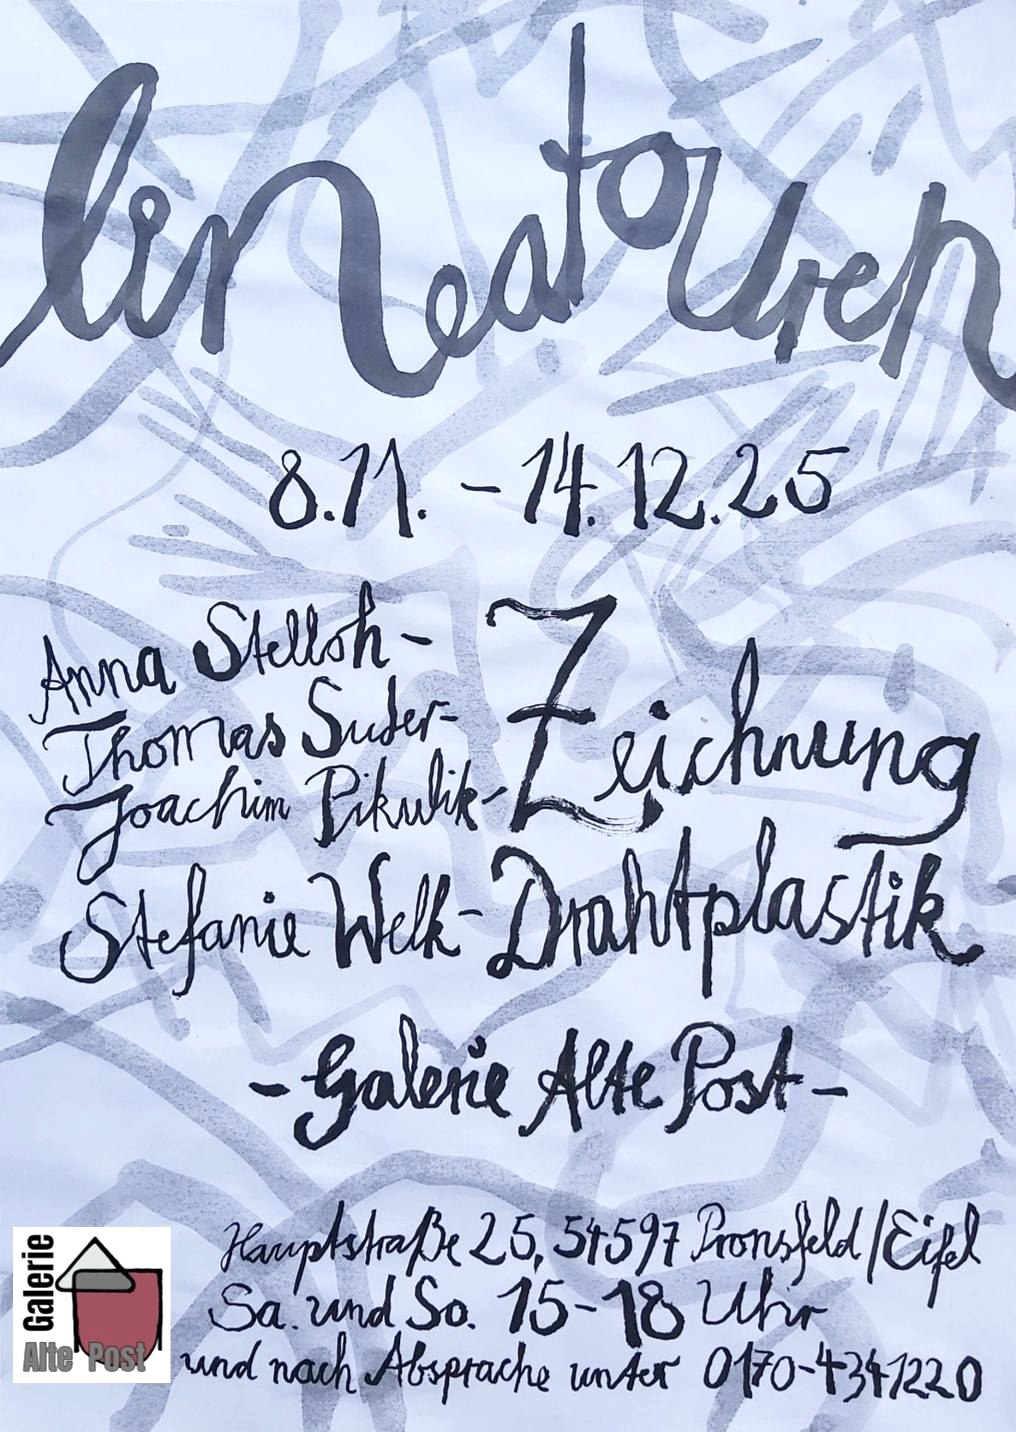 lineatouren
8.11. - 14.12.25
Anna Stelloh -
Thomas Suter -
Joachim Pikulik - Zeichnung
Stefanie Welk - Drahtplastik
- Galerie Alte Post -
Hauptstraße 25, 54597 Pronsfeld/Eifel
Sa. und So. 15-18 Uhr
und nach Absprache unter 0170-4341220
Galerie
Alte Post